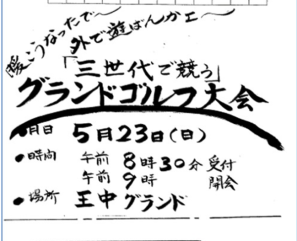 暖こうなったで〜
外で遊ばんかエ〜
「三世代で競う」
グランドゴルフ大会
●月日 5月23日(日)
●時間 午前 8時30分 受付
午前 9時 開会
●場所 王中グランド